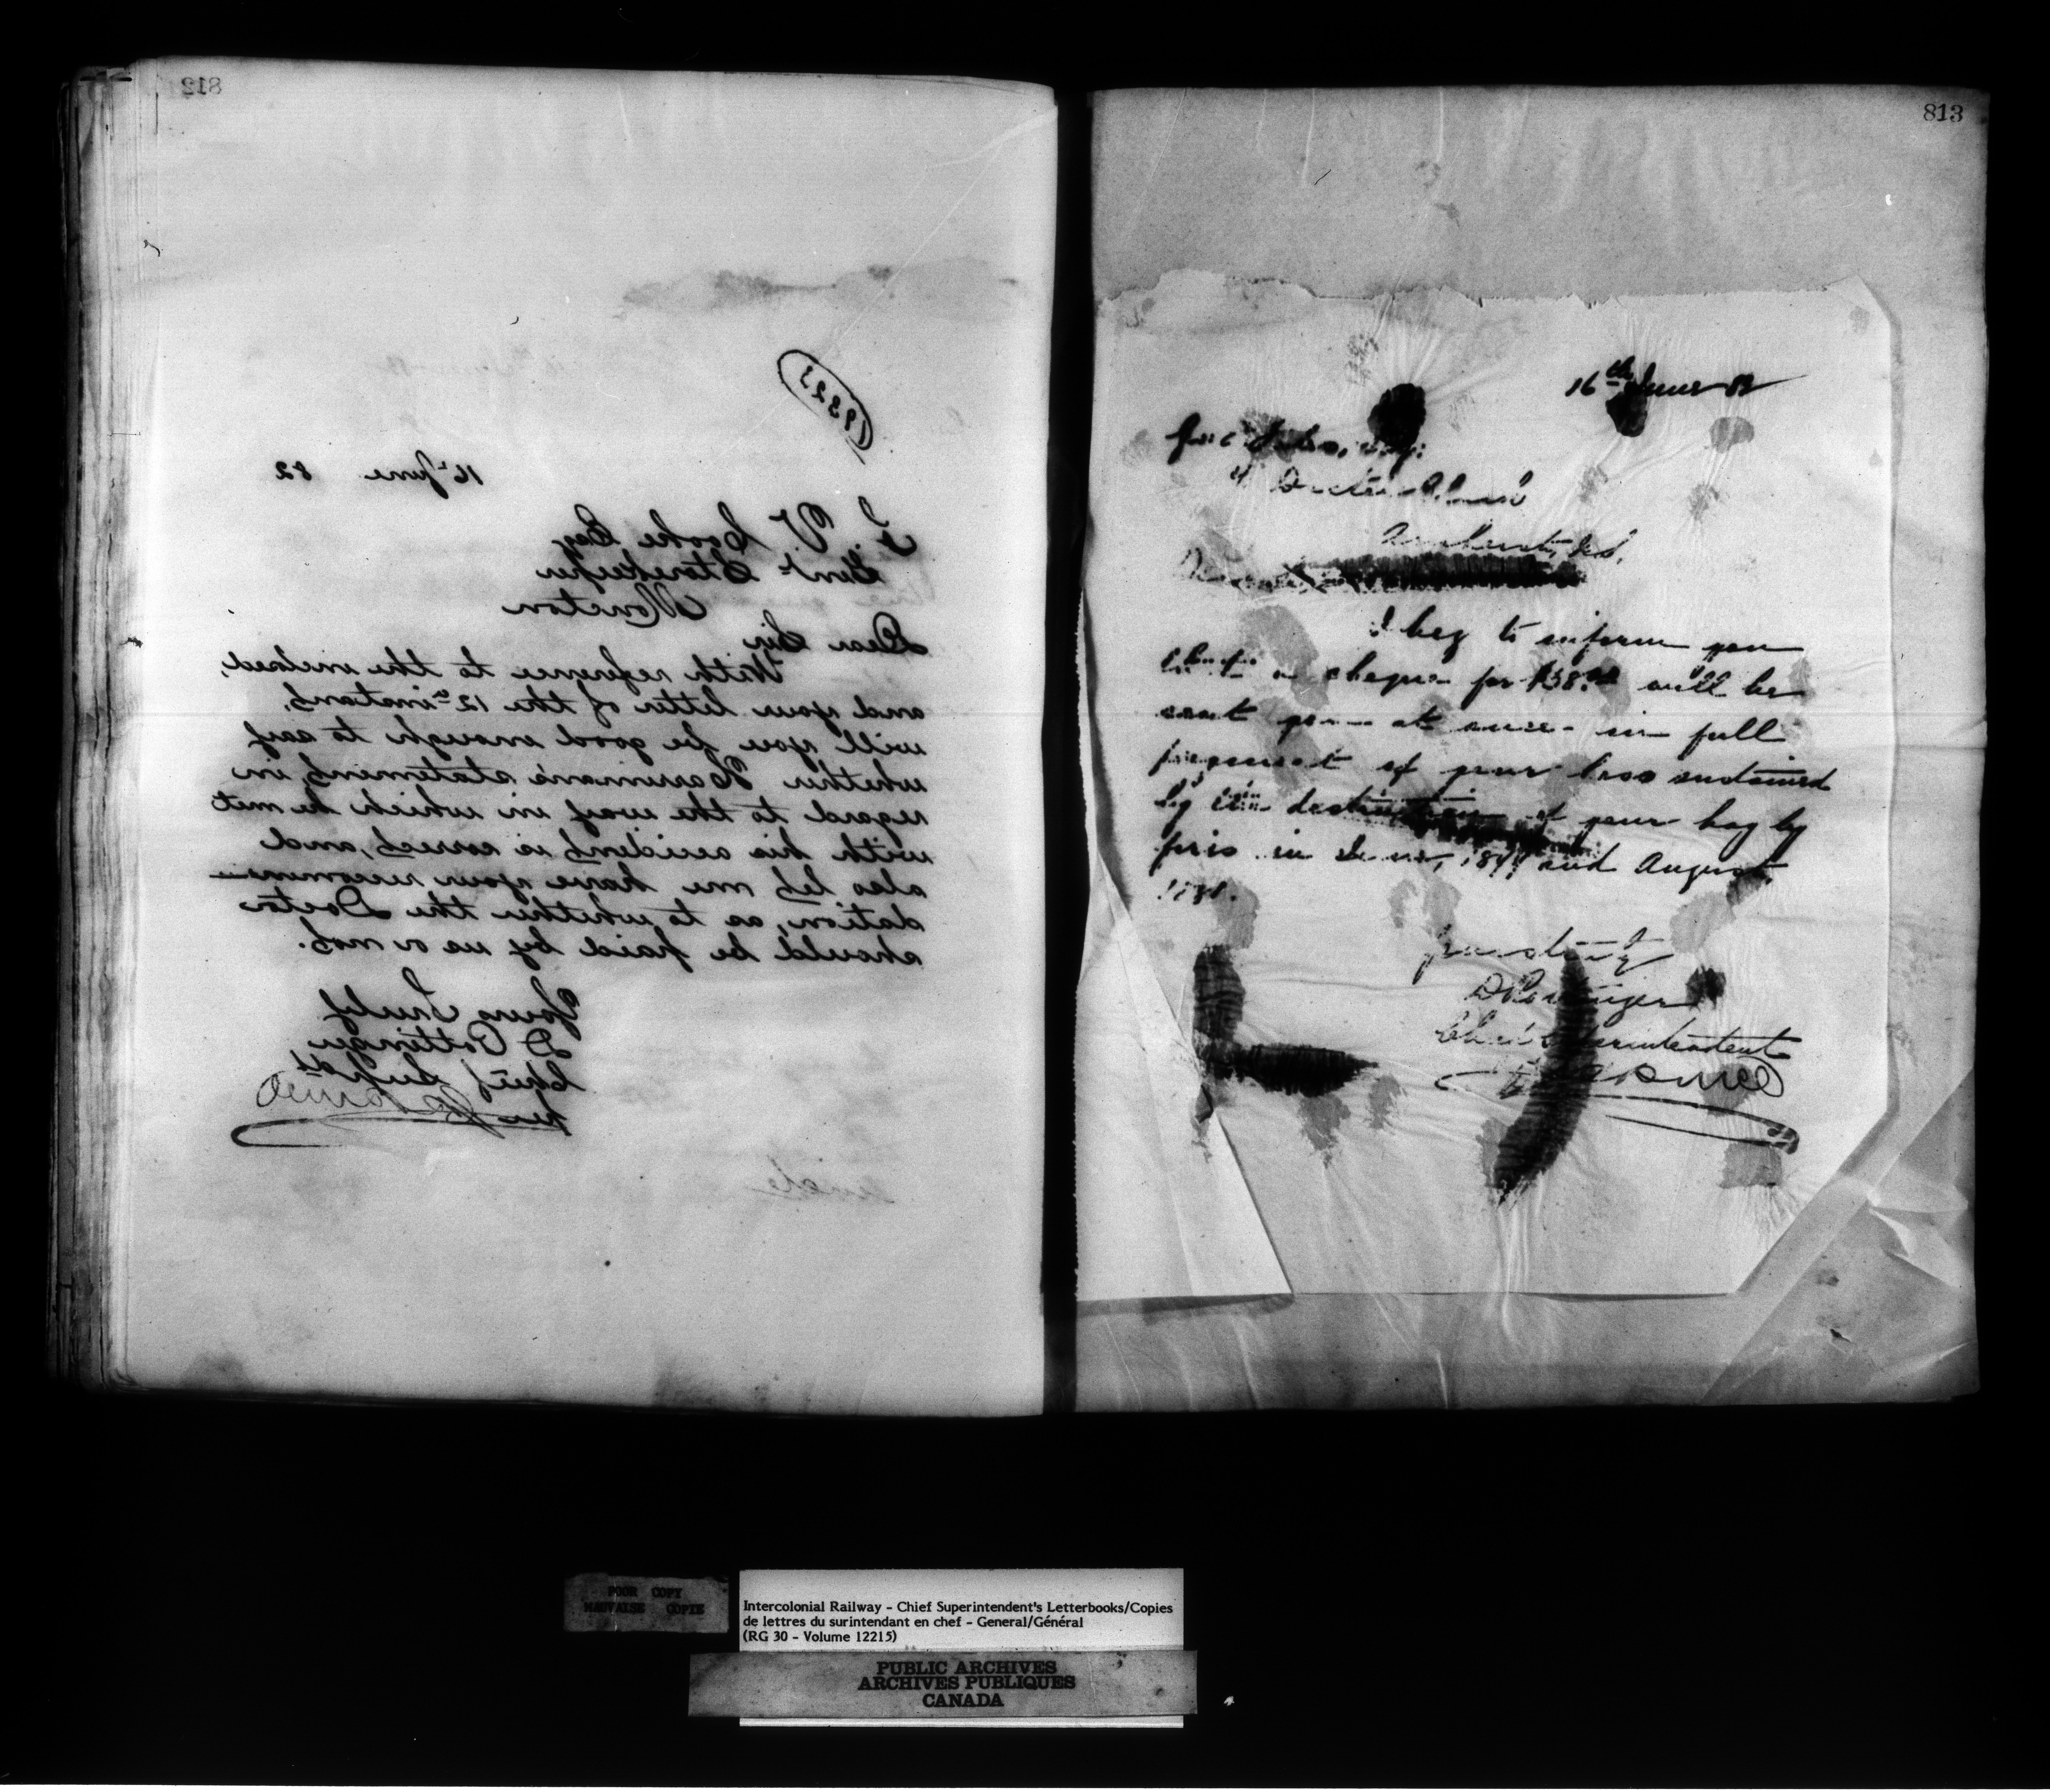 812
19323
16th June 82
T. V. Cooke Esq
Genl Storekeeper
Moncton
Dear Sir
With reference to the inclosed,
and your letter of the 12th instant,
will you be good enough to say
whether Harriman's statement, in
regard to the way in which he met
with his accident is correct, and
also let me have your recommen-
dation, as to whether the Doctor
should be paid by us or not.
Yours Truly
D Pottinger
Chief Supdt
per
813
16th June 82
Esq:
Amherst, N.S.
I beg to inform you
that a cheque for will be
sent you at once in full
payment of your loss sustained
by the destruction of your hay by
fire in June, and August,
Yours truly
D Pottinger
Chief Superintendent
POOR COPY
MAUVAISE COPIE
Intercolonial Railway - Chief Superintendent's Letterbooks/Copies
de lettres du surintendant en chef - General/Général
(RG 30 - Volume 12215)
PUBLIC ARCHIVES
ARCHIVES PUBLIQUES
CANADA